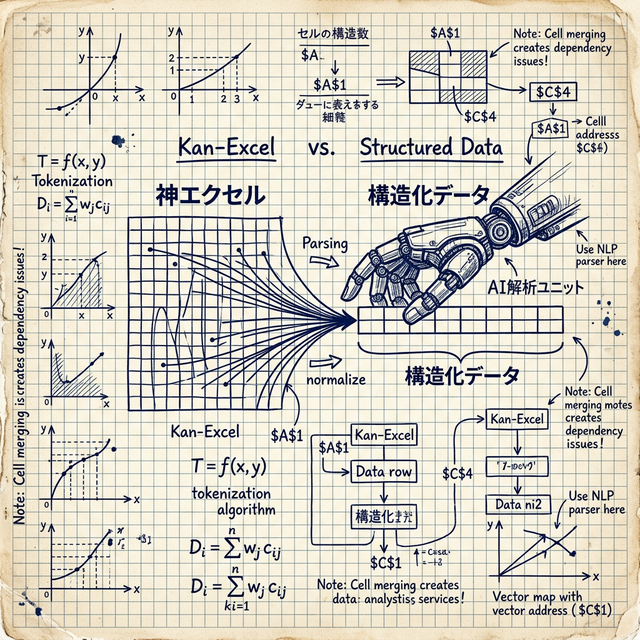 セルの構造数
$A
$A$1
$A$1
$C$4
Note: Cell merging
creates dependency
issues!
$C$4
$A$1
Celll
addresss
$C$4)
y
x
0
y
2
1
0
1
2
3
x
Kan-Excel vs. Structured Data
神エクセル
構造化データ
T = f(x, y)
Tokenization
D_i = n∑i=1 w_j c_ij
Parsing
normalize
Use NLP
parser here
AI解析ユニット
構造化データ
Note: Cell merging iscreates dependency issues!
y
2
1
0
x
y
x
y
0
x
y
0
x
Kan-Excel
$A$1
T = f(x, y)
tokenization
algorithm
D_i = n∑ w_j c_ij
D_i = n∑ki=1 w_j c_ij
$A$1
Kan-Excel
Data row
構造化
$C$1
$C$4
Note: Cell merging creates
data: analystiss services!
Note: Cell
merging motes
creates
dependency
issues!
Kan-Excel
Data ni2
Use NLP
parser here
y
x
Vector map with
vector address ($C$1)